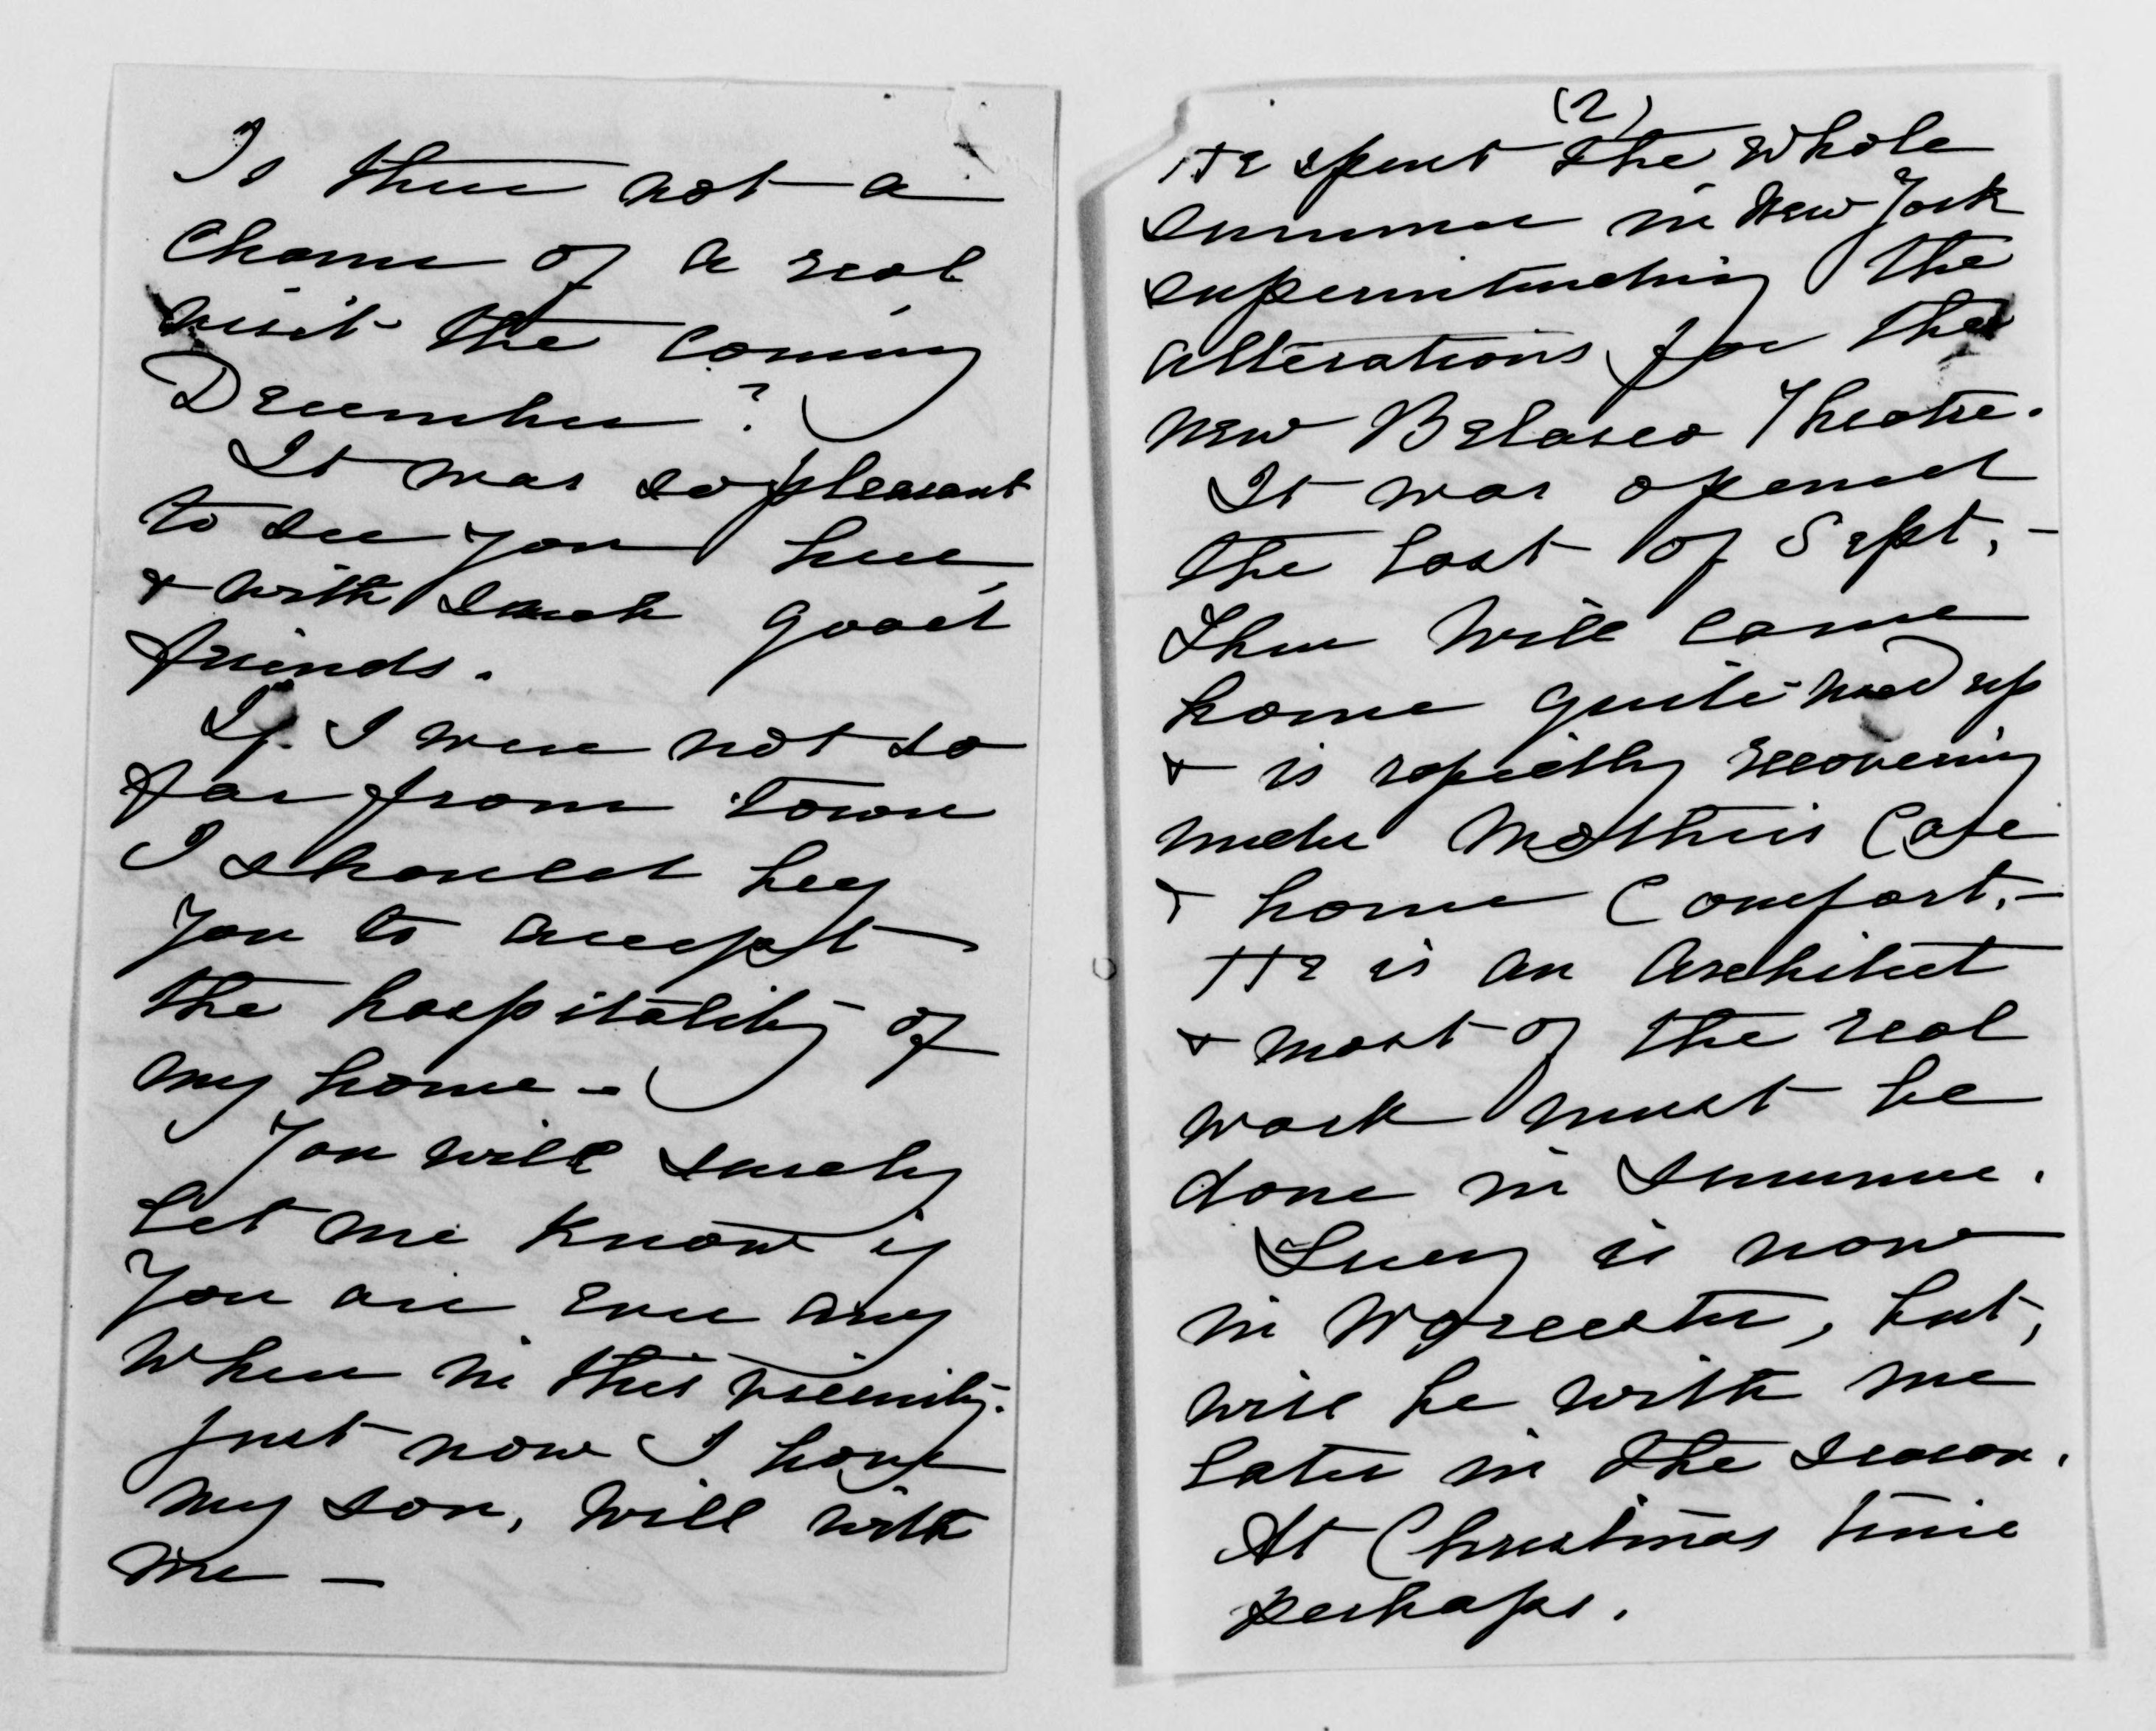 Is there not a
chance of a real
visit the coming
December?
It was so pleasant
to see you here,
& with such good
friends.
If I were not so
far from town
I should beg
you to accept
the hospitality of
my home -
You will surely
let me know if
you are ever any
where in this vicinity.
Just now I have
my son, Will with
me -
(2)
He spent the whole
summer in New York
superintending the
alterations for the
new Belasco Theatre.
It was opened
the last of Sept, -
Then Will came
home quite used up
& is rapidly recovering
under Mother's care
& home comfort, -
He is an architect
& most of the real
work must be
done in summer.
Lucy is now
in Worcester, but,
will be with me
later in the season.
At Christmas time
perhaps.